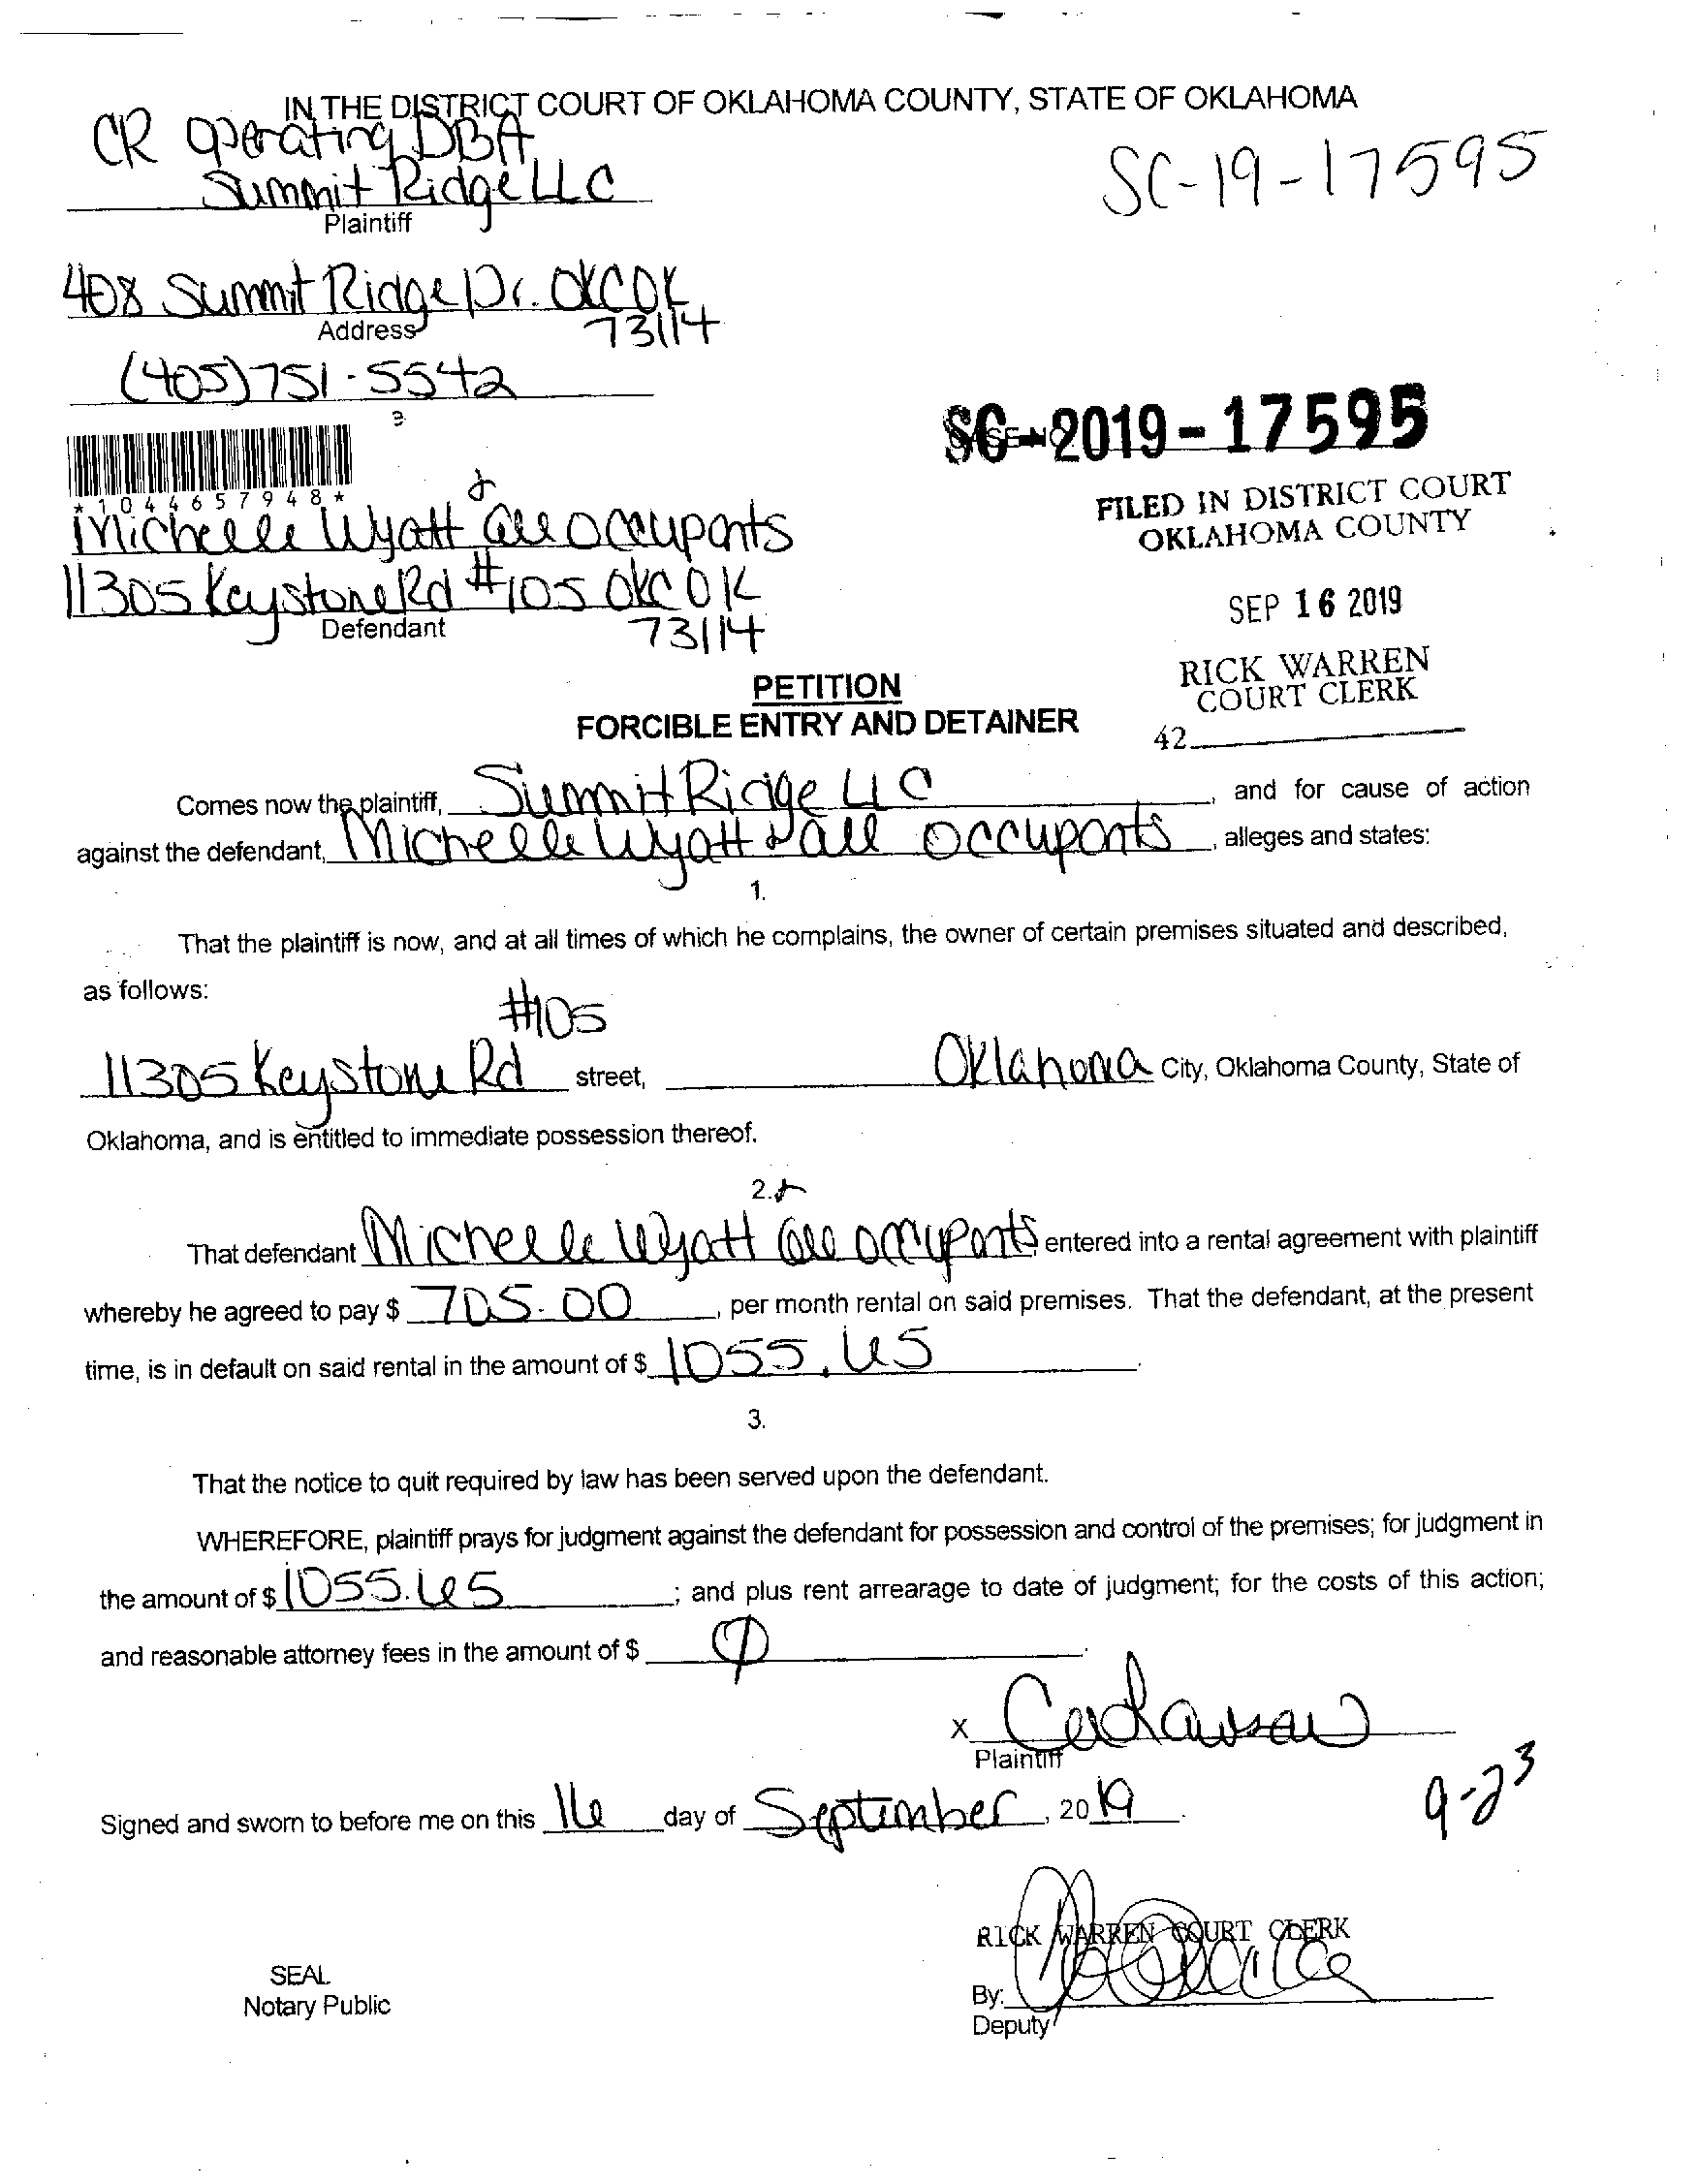 IN THE DISTRICT COURT OF OKLAHOMA COUNTY, STATE OF OKLAHOMA
CR Operating DBA
Summit Ridge LLC
Plaintiff
SC-19-17595
408 Summit Ridge Dr. OKC OK
73114
Address
(405) 751-5542
SC-2019-17595
*1044657948*
FILED IN DISTRICT COURT
OKLAHOMA COUNTY
Michelle Wyatt & all occupants
11305 Keystone Rd #105 OKC OK
73114
Defendant
SEP 16 2019
RICK WARREN
COURT CLERK
42
PETITION
FORCIBLE ENTRY AND DETAINER
Comes now the plaintiff, Summit Ridge LLC, and for cause of action
against the defendant, Michelle Wyatt & all occupants, alleges and states:
1.
That the plaintiff is now, and at all times of which he complains, the owner of certain premises situated and described,
as follows:
#105
11305 Keystone Rd street, Oklahoma City, Oklahoma County, State of
Oklahoma, and is entitled to immediate possession thereof.
2.
That defendant Michelle Wyatt & all occupants entered into a rental agreement with plaintiff
whereby he agreed to pay $ 705.00, per month rental on said premises. That the defendant, at the present
time, is in default on said rental in the amount of $ 1055.65.
3.
That the notice to quit required by law has been served upon the defendant.
WHEREFORE, plaintiff prays for judgment against the defendant for possession and control of the premises; for judgment in
the amount of $ 1055.65; and plus rent arrearage to date of judgment; for the costs of this action;
and reasonable attorney fees in the amount of $ 0.
X
Plaintiff
Signed and sworn to before me on this 16 day of September, 2019.
9-23
RICK WARREN COURT CLERK
SEAL
Notary Public
By:
Deputy